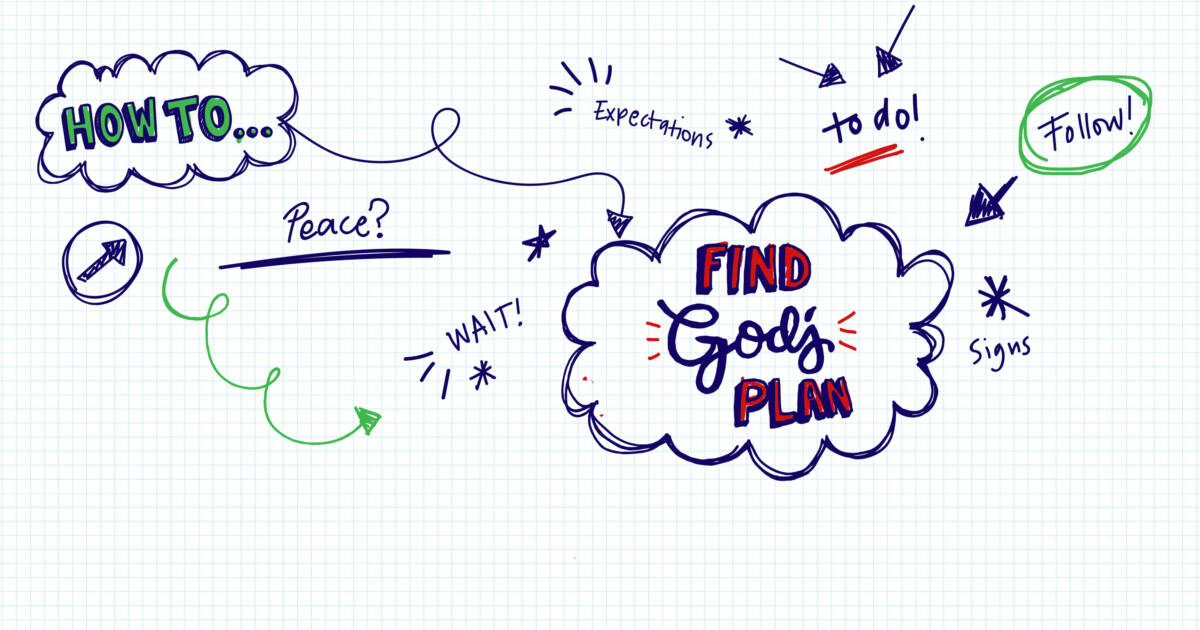 HOW TO...
Expectations
to do!
Follow!
Peace?
WAIT!
FIND
God's
PLAN
Signs